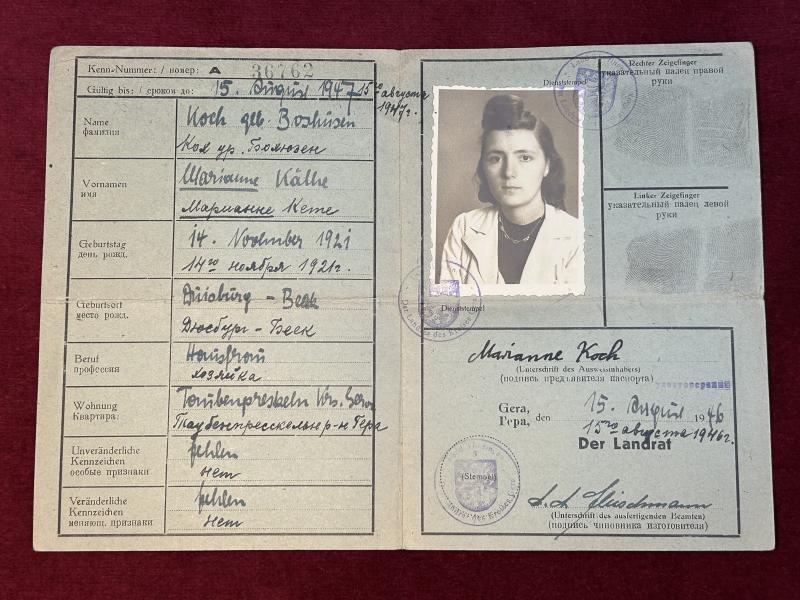 Kenn-Nummer: / номер: A 36762
Gültig bis: / сроком до: 15. August 1947 15го августа 1947г.
Name
фамилия
Koch geb. Boshüsen
Кох ур. Бошюзен
Vornamen
имя
Marianne Käthe
Марианне Кете
Geburtstag
день рожд.
14. November 1921
14го ноября 1921г.
Geburtsort
место рожд.
Duisburg - Beek
Дюсбург - Беек
Beruf
профессия
Hausfrau
хозяйка
Wohnung
Квартира:
Taubenpreskeln Krs. Gera
Таубенпресскельн р-н Гера
Unveränderliche
Kennzeichen
особые признаки
fehlen
нет
Veränderliche
Kennzeichen
меняющ. признаки
fehlen
нет
Dienststempel
Rechter Zeigefinger
указательный палец правой
руки
Linker Zeigefinger
указательный палец левой
руки
Dienststempel
Der Landrat des Kreises
Marianne Koch
(Unterschrift des Ausweisinhabers)
(подпись предъявителя паспорта)
Gera, den 15. August 1946
Гера, 15го августа 1946г.
Der Landrat
(Stempel)
(Unterschrift des ausfertigenden Beamten)
(подпись чиновника изготовителя)